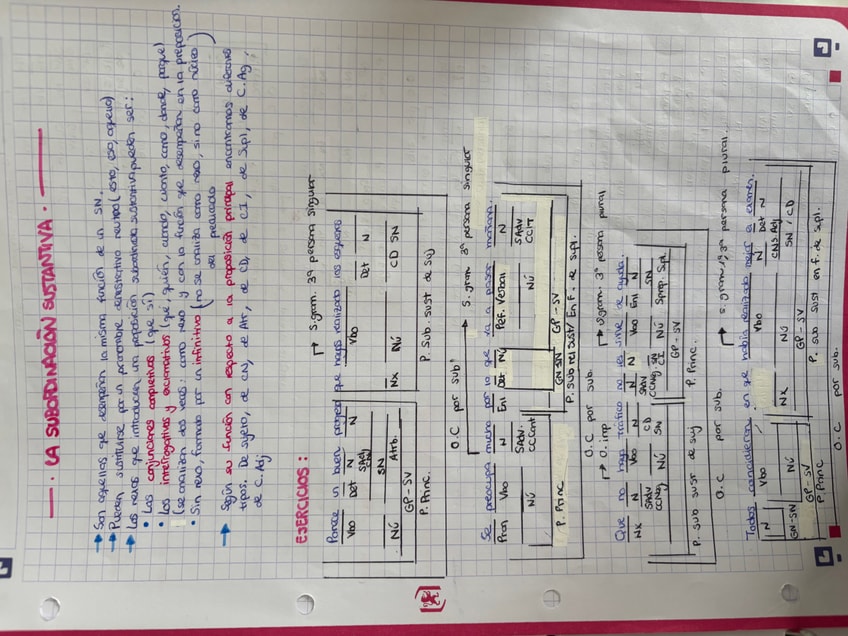 —· LA SUBORDINACIÓN SUSTANTIVA·—
→ Son aquellas que desempeñan la misma función de un SN.
→ Pueden sustituirse por un pronombre demostrativo neutro (esto, eso, aquello)
→ Los nexos que introducen una proposición subordinada sustantiva pueden ser:
• Las conjunciones completivas (que, si)
• Los interrogativos y exclamativos (qué, quién, cuándo, cuánto, cómo, dónde, porque)
(se analizan dos veces: como nexo y con la función que desempeñan en la preposición.
• Sin nexo, formado por un infinitivo (no se analiza como nexo, sino como núcleo
del predicado)
→ Según su función con respecto a la proposición principal encontramos diferentes
tipos: De sujeto, de CN, de Atr, de CD, de CI, de Supl, de C.Ag,
de C.Adj
EJERCICIOS:
→ S.gram. 3ª persona singular
Parece un buen presagio que hayas realizado los esquemas
Vbo Det N N Vbo Det N
SAdj
CN
SN
Nú Atrb. Nx Nú CD SN
GP-SV
P. Princ. P. Sub. sust de suj
O.C por sub.
→ S. gram. 3ª persona singular
Se preocupa mucho por lo que va a pasar mañana.
Pron Vbo N Enl Det Nú Perf. Verbal N
SAdv. SAdv
Nú CCCant Nú CCT
GN-SN GP-SV
P. Princ P. Sub rel sust/ En f. de Supl.
O.C por sub.
→ O. imp → S.gram. 3ª persona plural
Que no haya tráfico no les sirve de ayuda.
Nx N Vbo N N N Vbo Enl N
SAdv CD SAdv SN SN
CCNeg Nú SN CCNeg CI Nú Sprep. Spl.
GP-SV
P. sub sust de suj P. Princ.
O.C por sub.
→ S. gram. 3ª persona plural.
Todos coincidieron en que había realizado mejor el examen.
N Vbo Nx Vbo N Det N
GN-SN Nú Nú SN/CD
GP-SV GP-SV
P Princ P. sub sust en f. de supl.
O.C por sub.